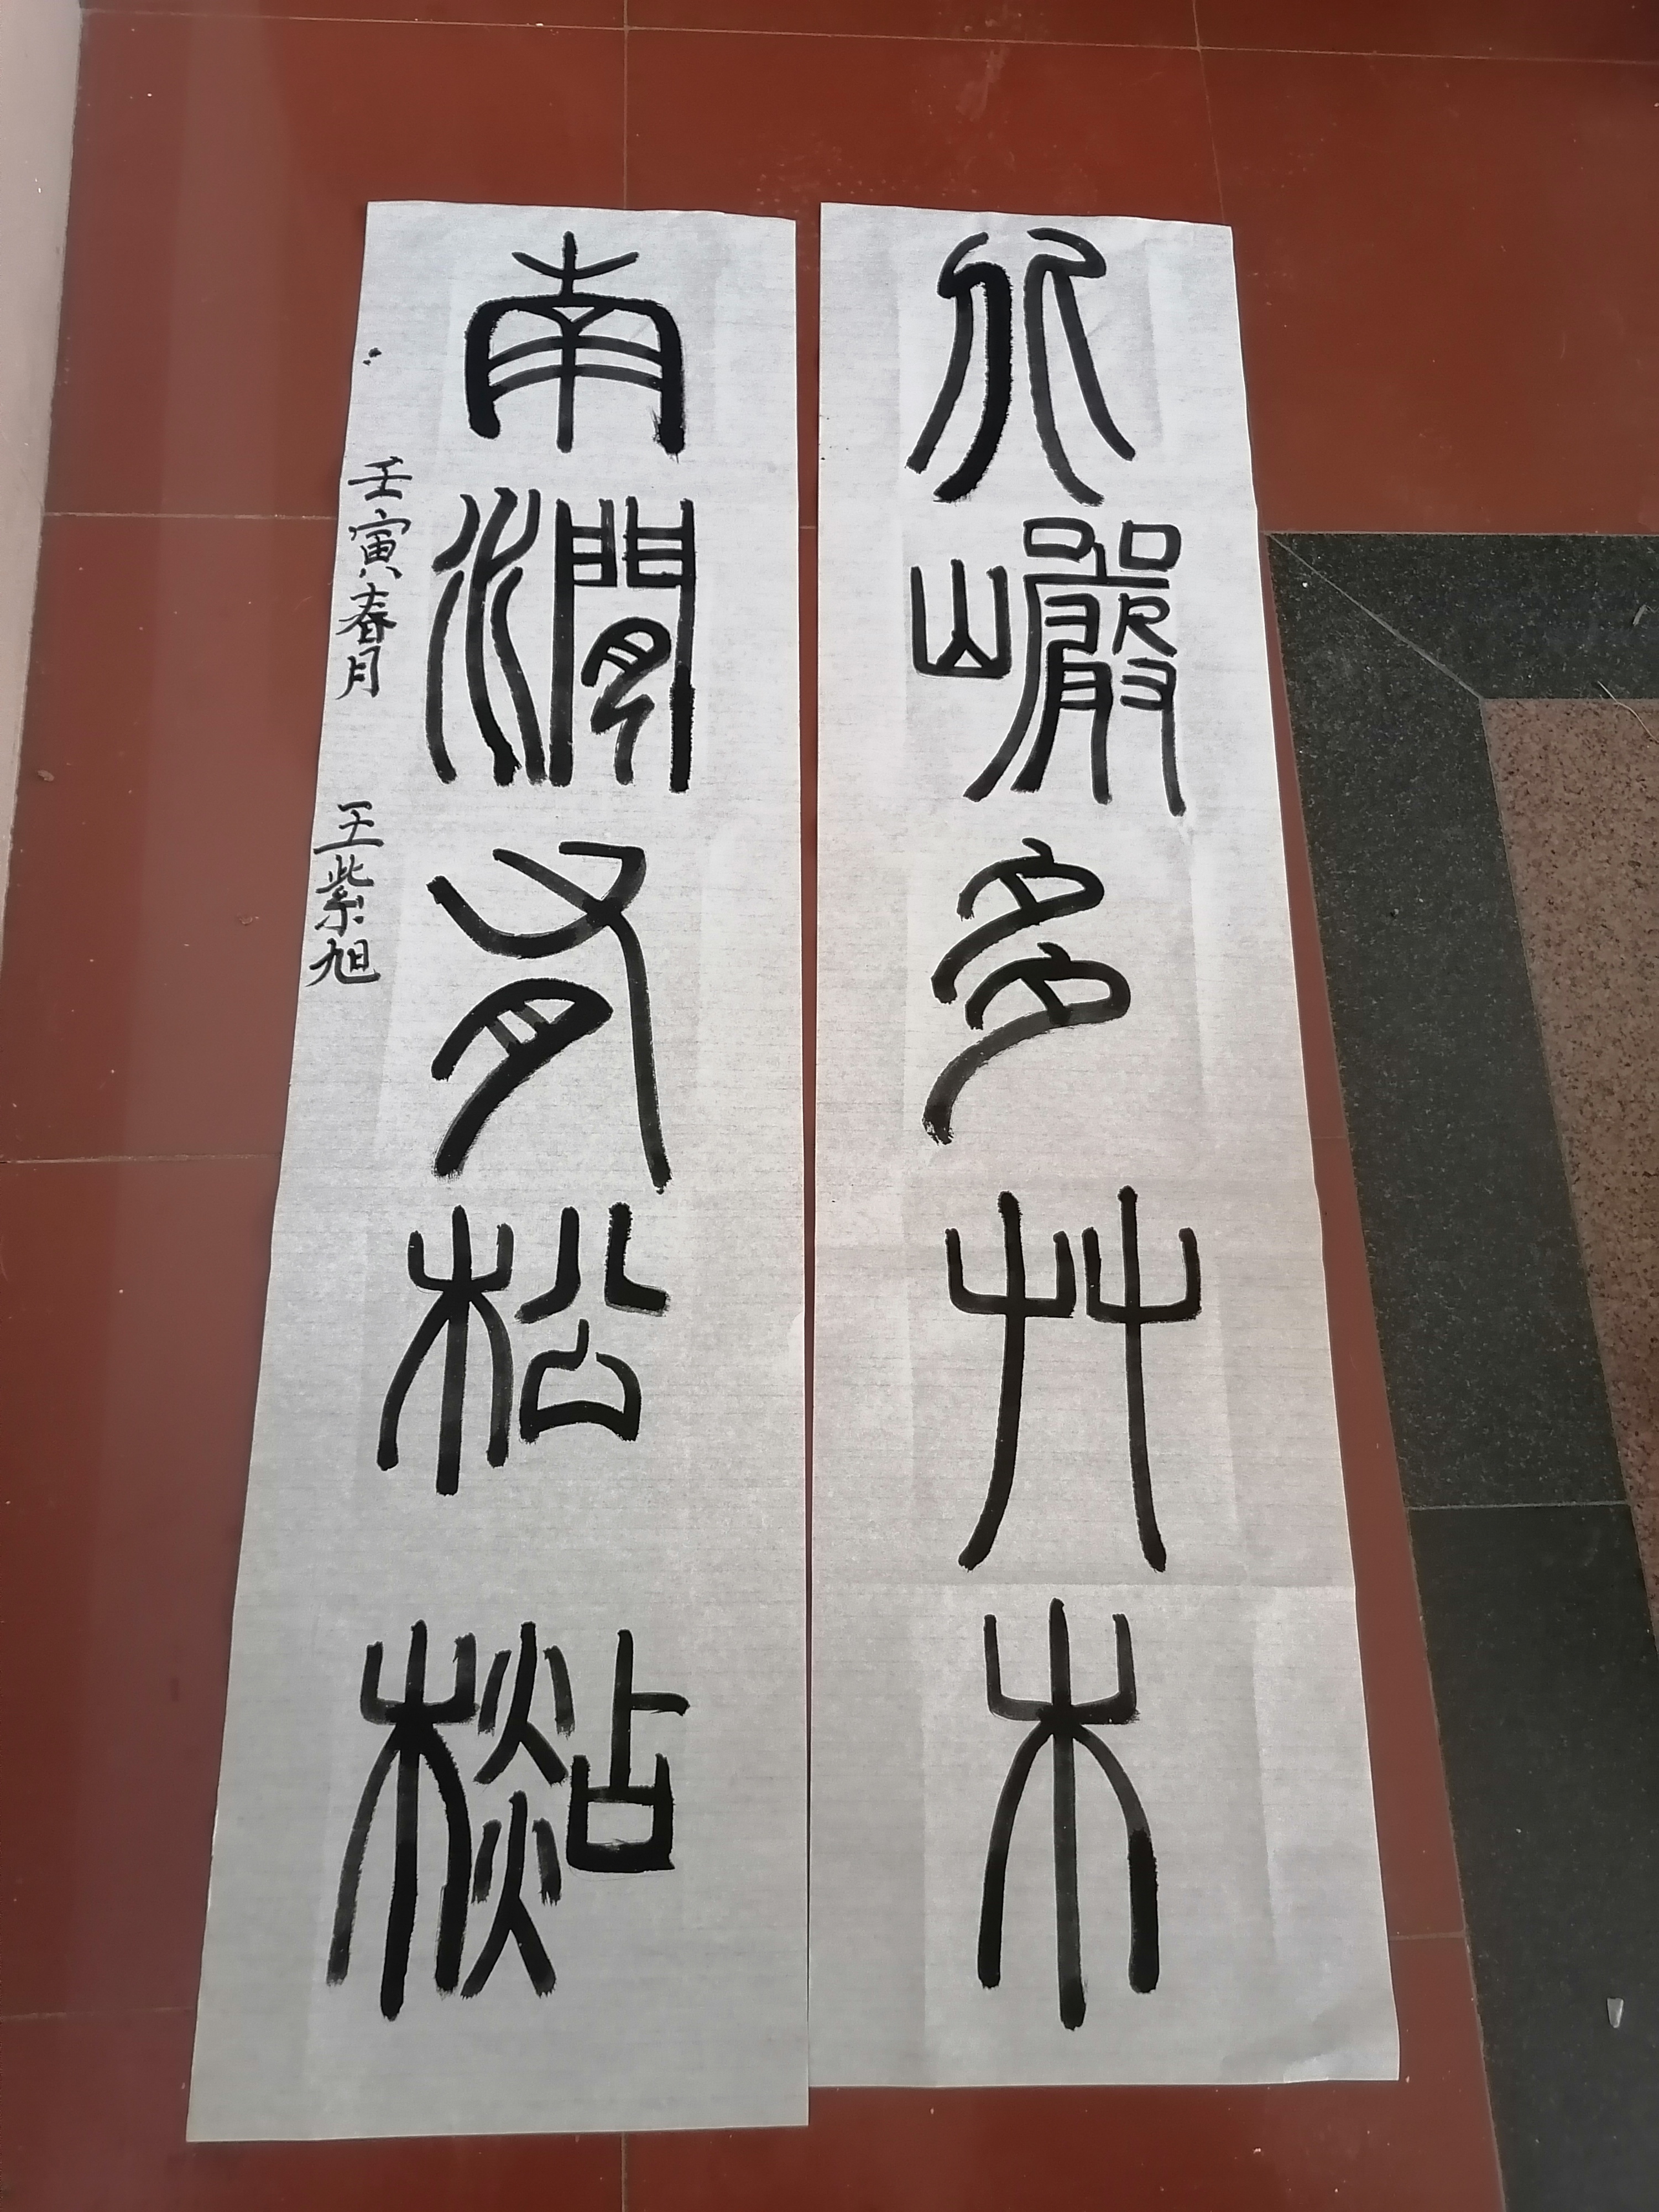 北巖多艸木
南澗有松檆
壬寅春月 王紫旭